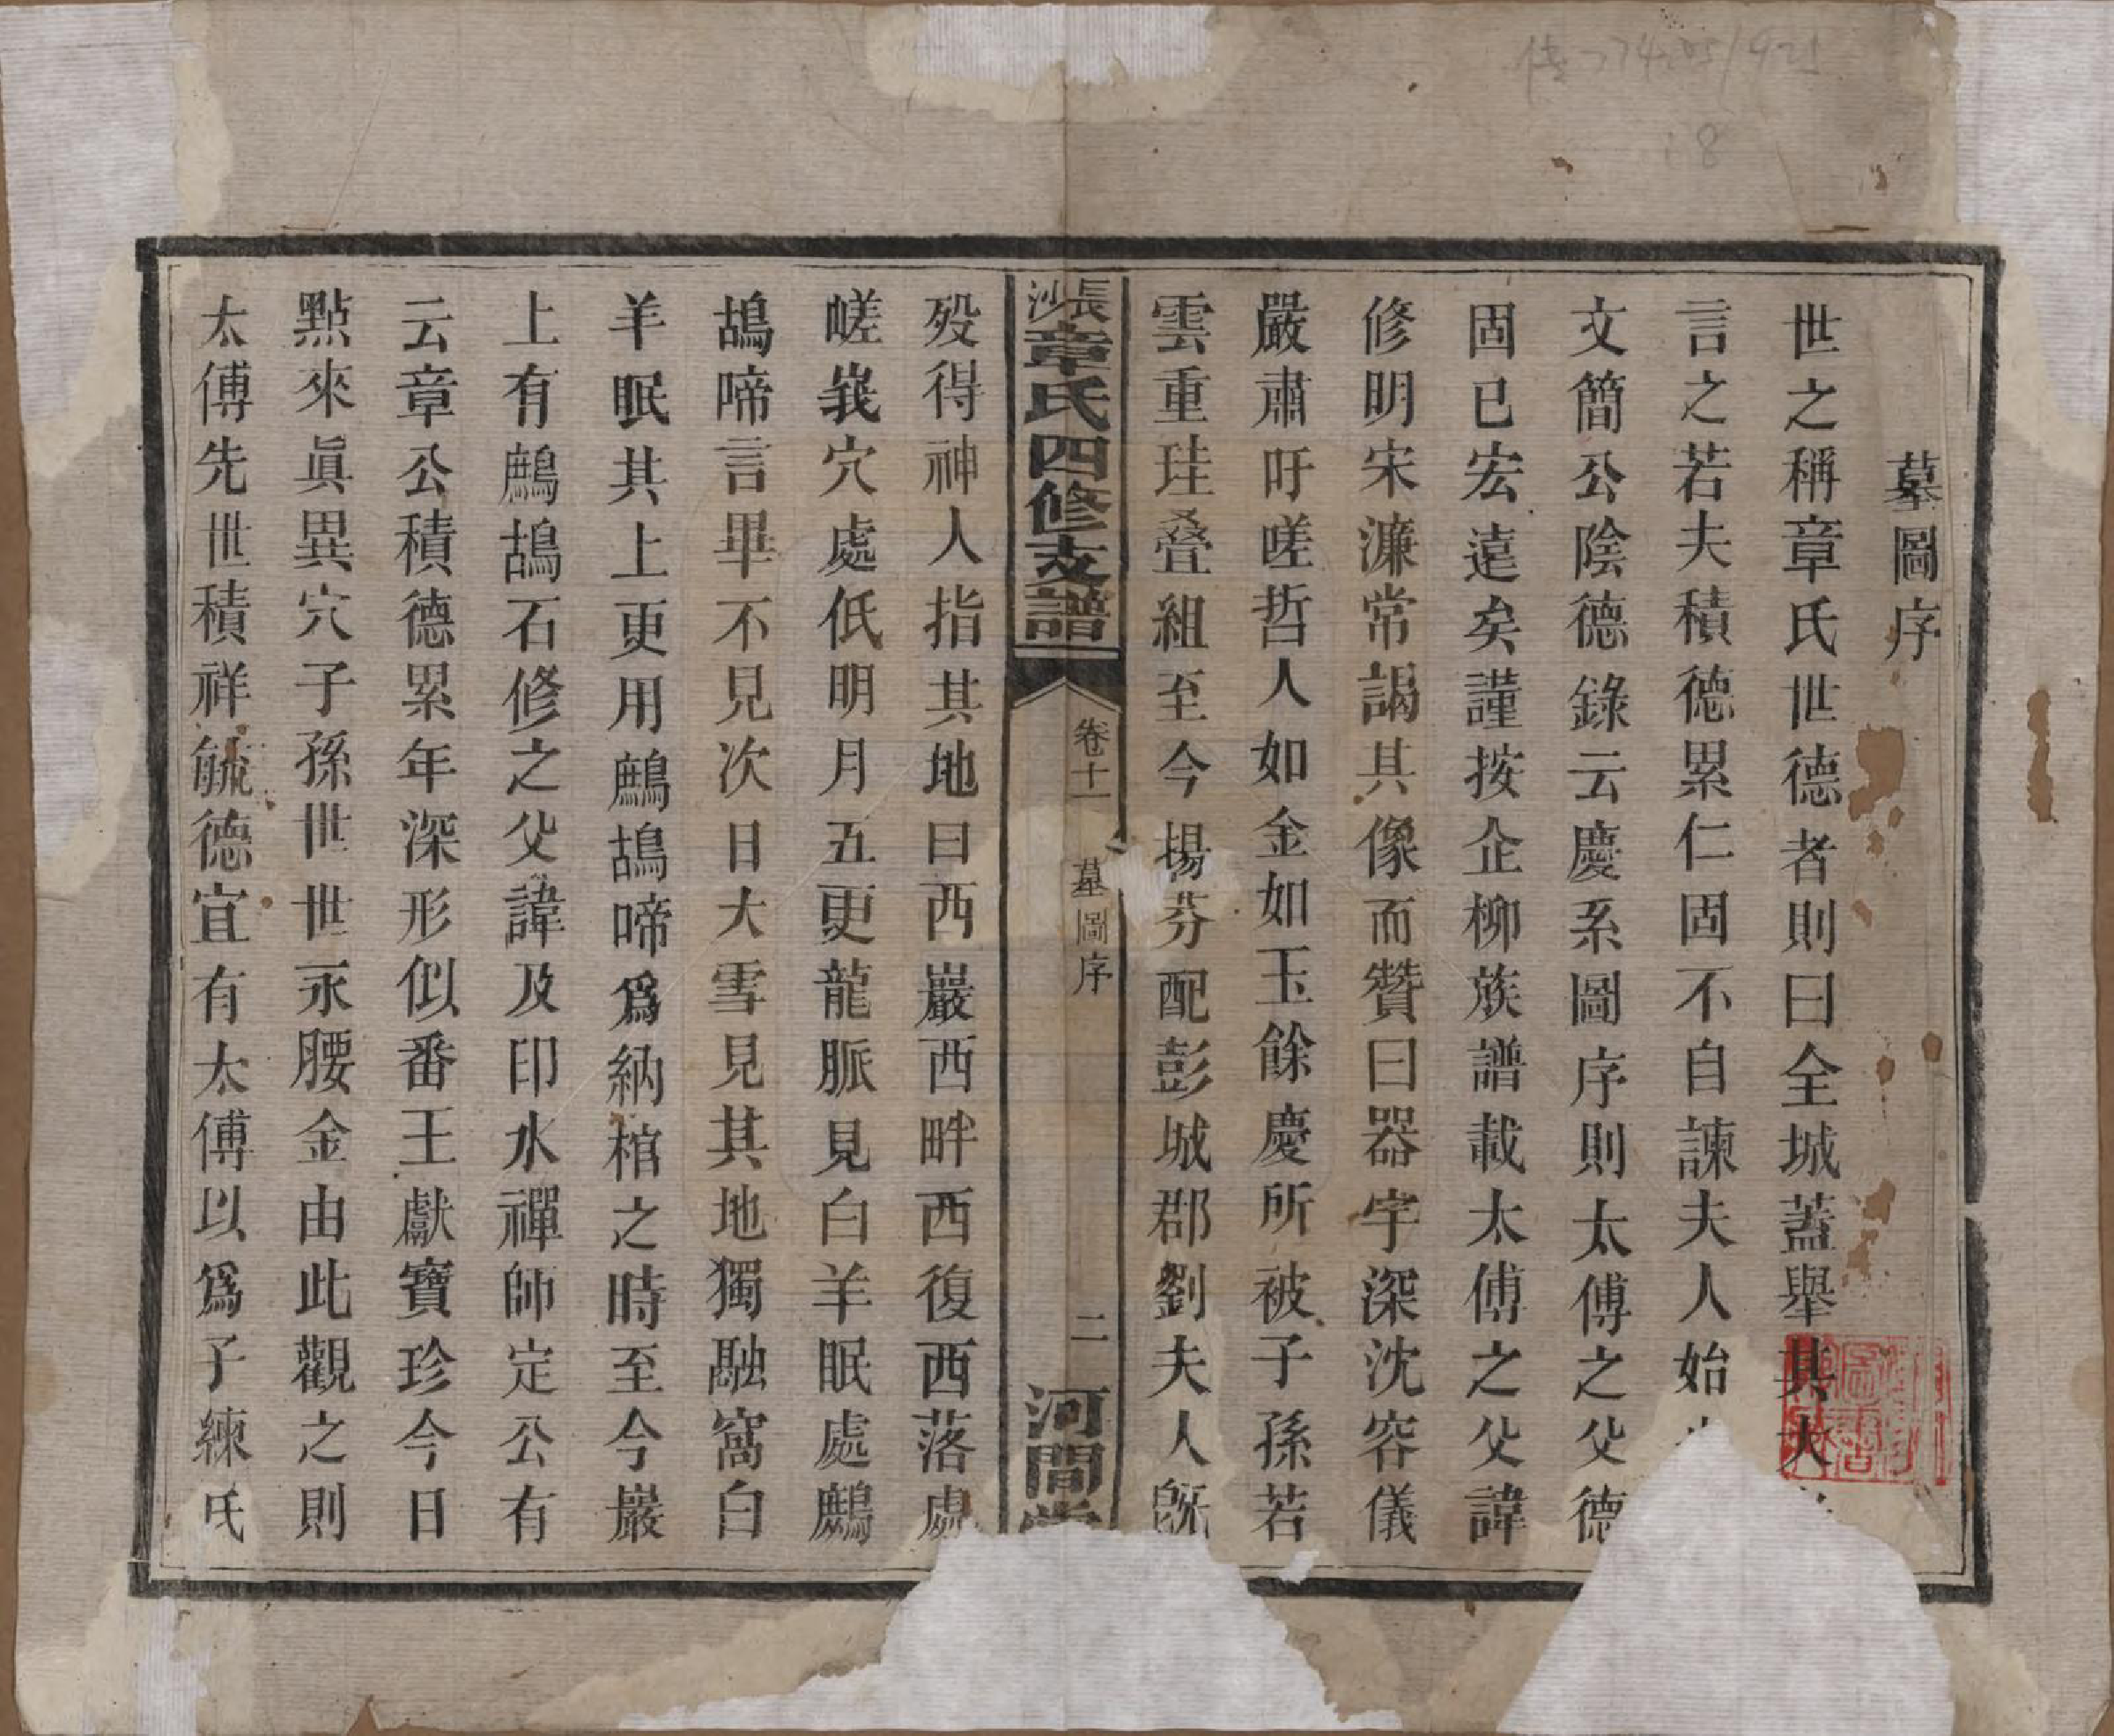 墓圖序
世之稱章氏世德者則曰全城蓋舉其大
言之若夫積德累仁固不自諫夫人始
文簡公陰德錄云慶系圖序則太傅之父德
固已宏遠矣謹按企柳族譜載太傅之父諱
修明宋濂常謁其像而贊曰器宇深沈容儀
嚴肅吁嗟哲人如金如玉餘慶所被子孫若
雲重珪叠組至今揚芬配彭城郡劉夫人旣
長沙章氏四修支譜
卷十一 墓圖序 二 河間堂
歿得神人指其地曰西巖西畔西復西落處
嵯峩穴處低明月五更龍脈見白羊眠處鷓
鴣啼言畢不見次日大雪見其地獨融窩白
羊眠其上更用鷓鴣啼爲納棺之時至今巖
上有鷓鴣石修之父諱及印水禪師定公有
云章公積德累年深形似番王獻寶珍今日
點來眞異穴子孫世世永腰金由此觀之則
太傅先世積祥毓德宜有太傅以爲子練氏